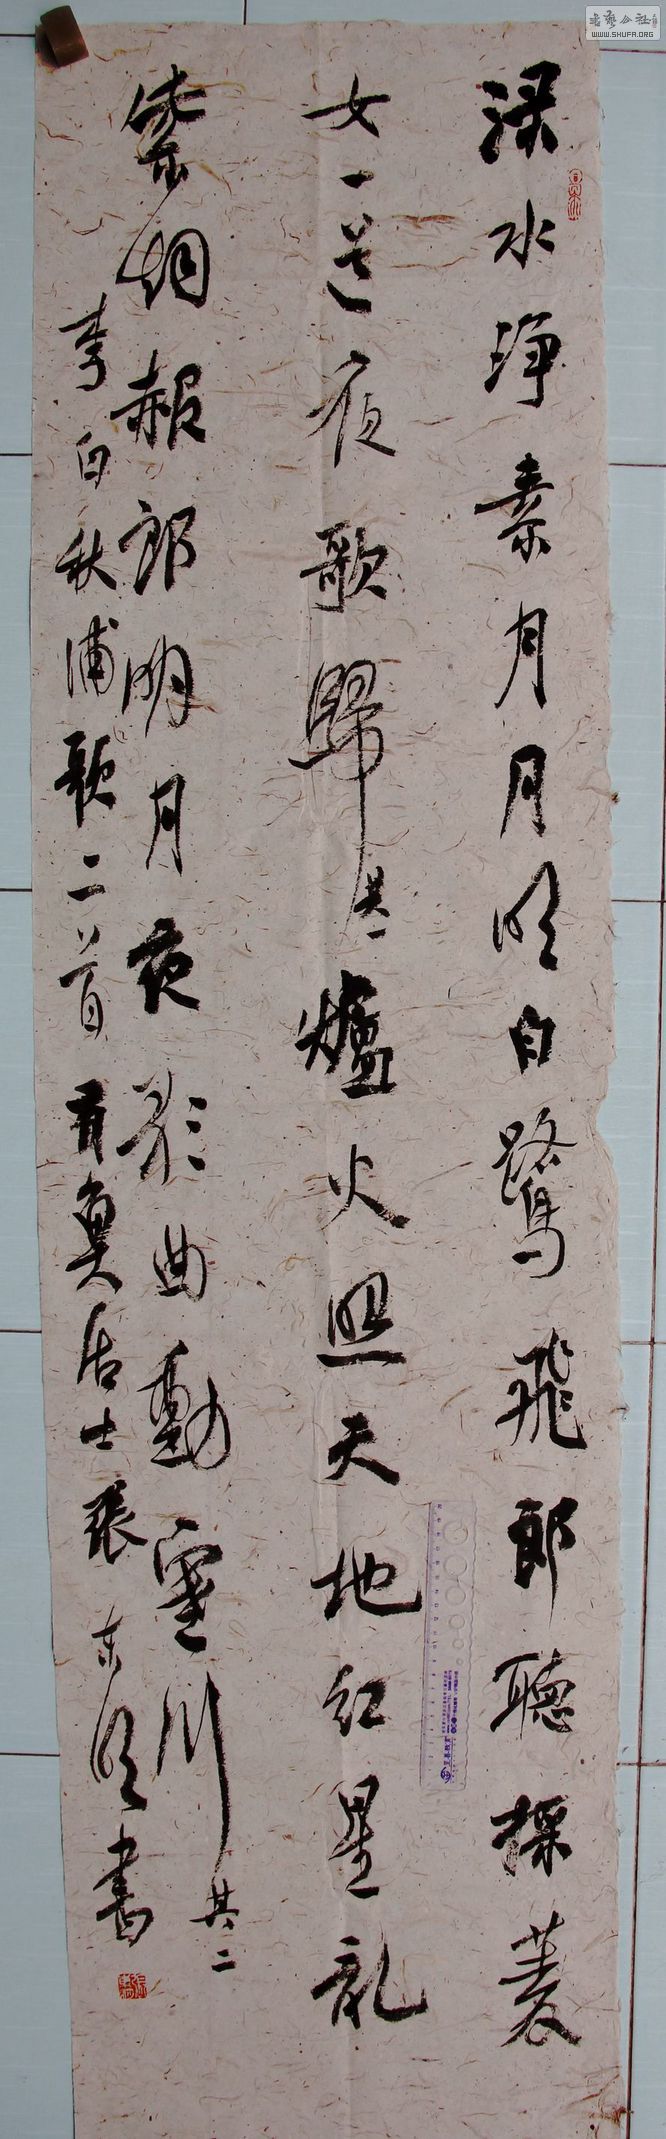 渌水净素月月明白鹭飞郎聽採菱
女一道夜歌歸其一爐火照天地红星乱
紫烟赧郎明月夜歌曲動寒川其二
李白秋浦歌二首
居士張东明書
WWW.SHUFA.ORG